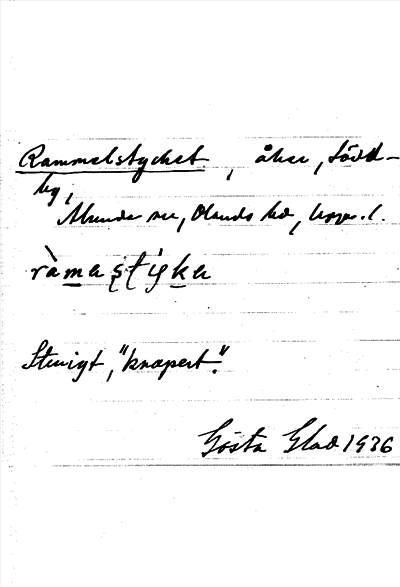 Rammelstycket, åker, Södd-
by,
Almunda sn, Olands hd, Upps. l.
ràmastika
Stenigt, "knapert".
Gösta Glad 1936